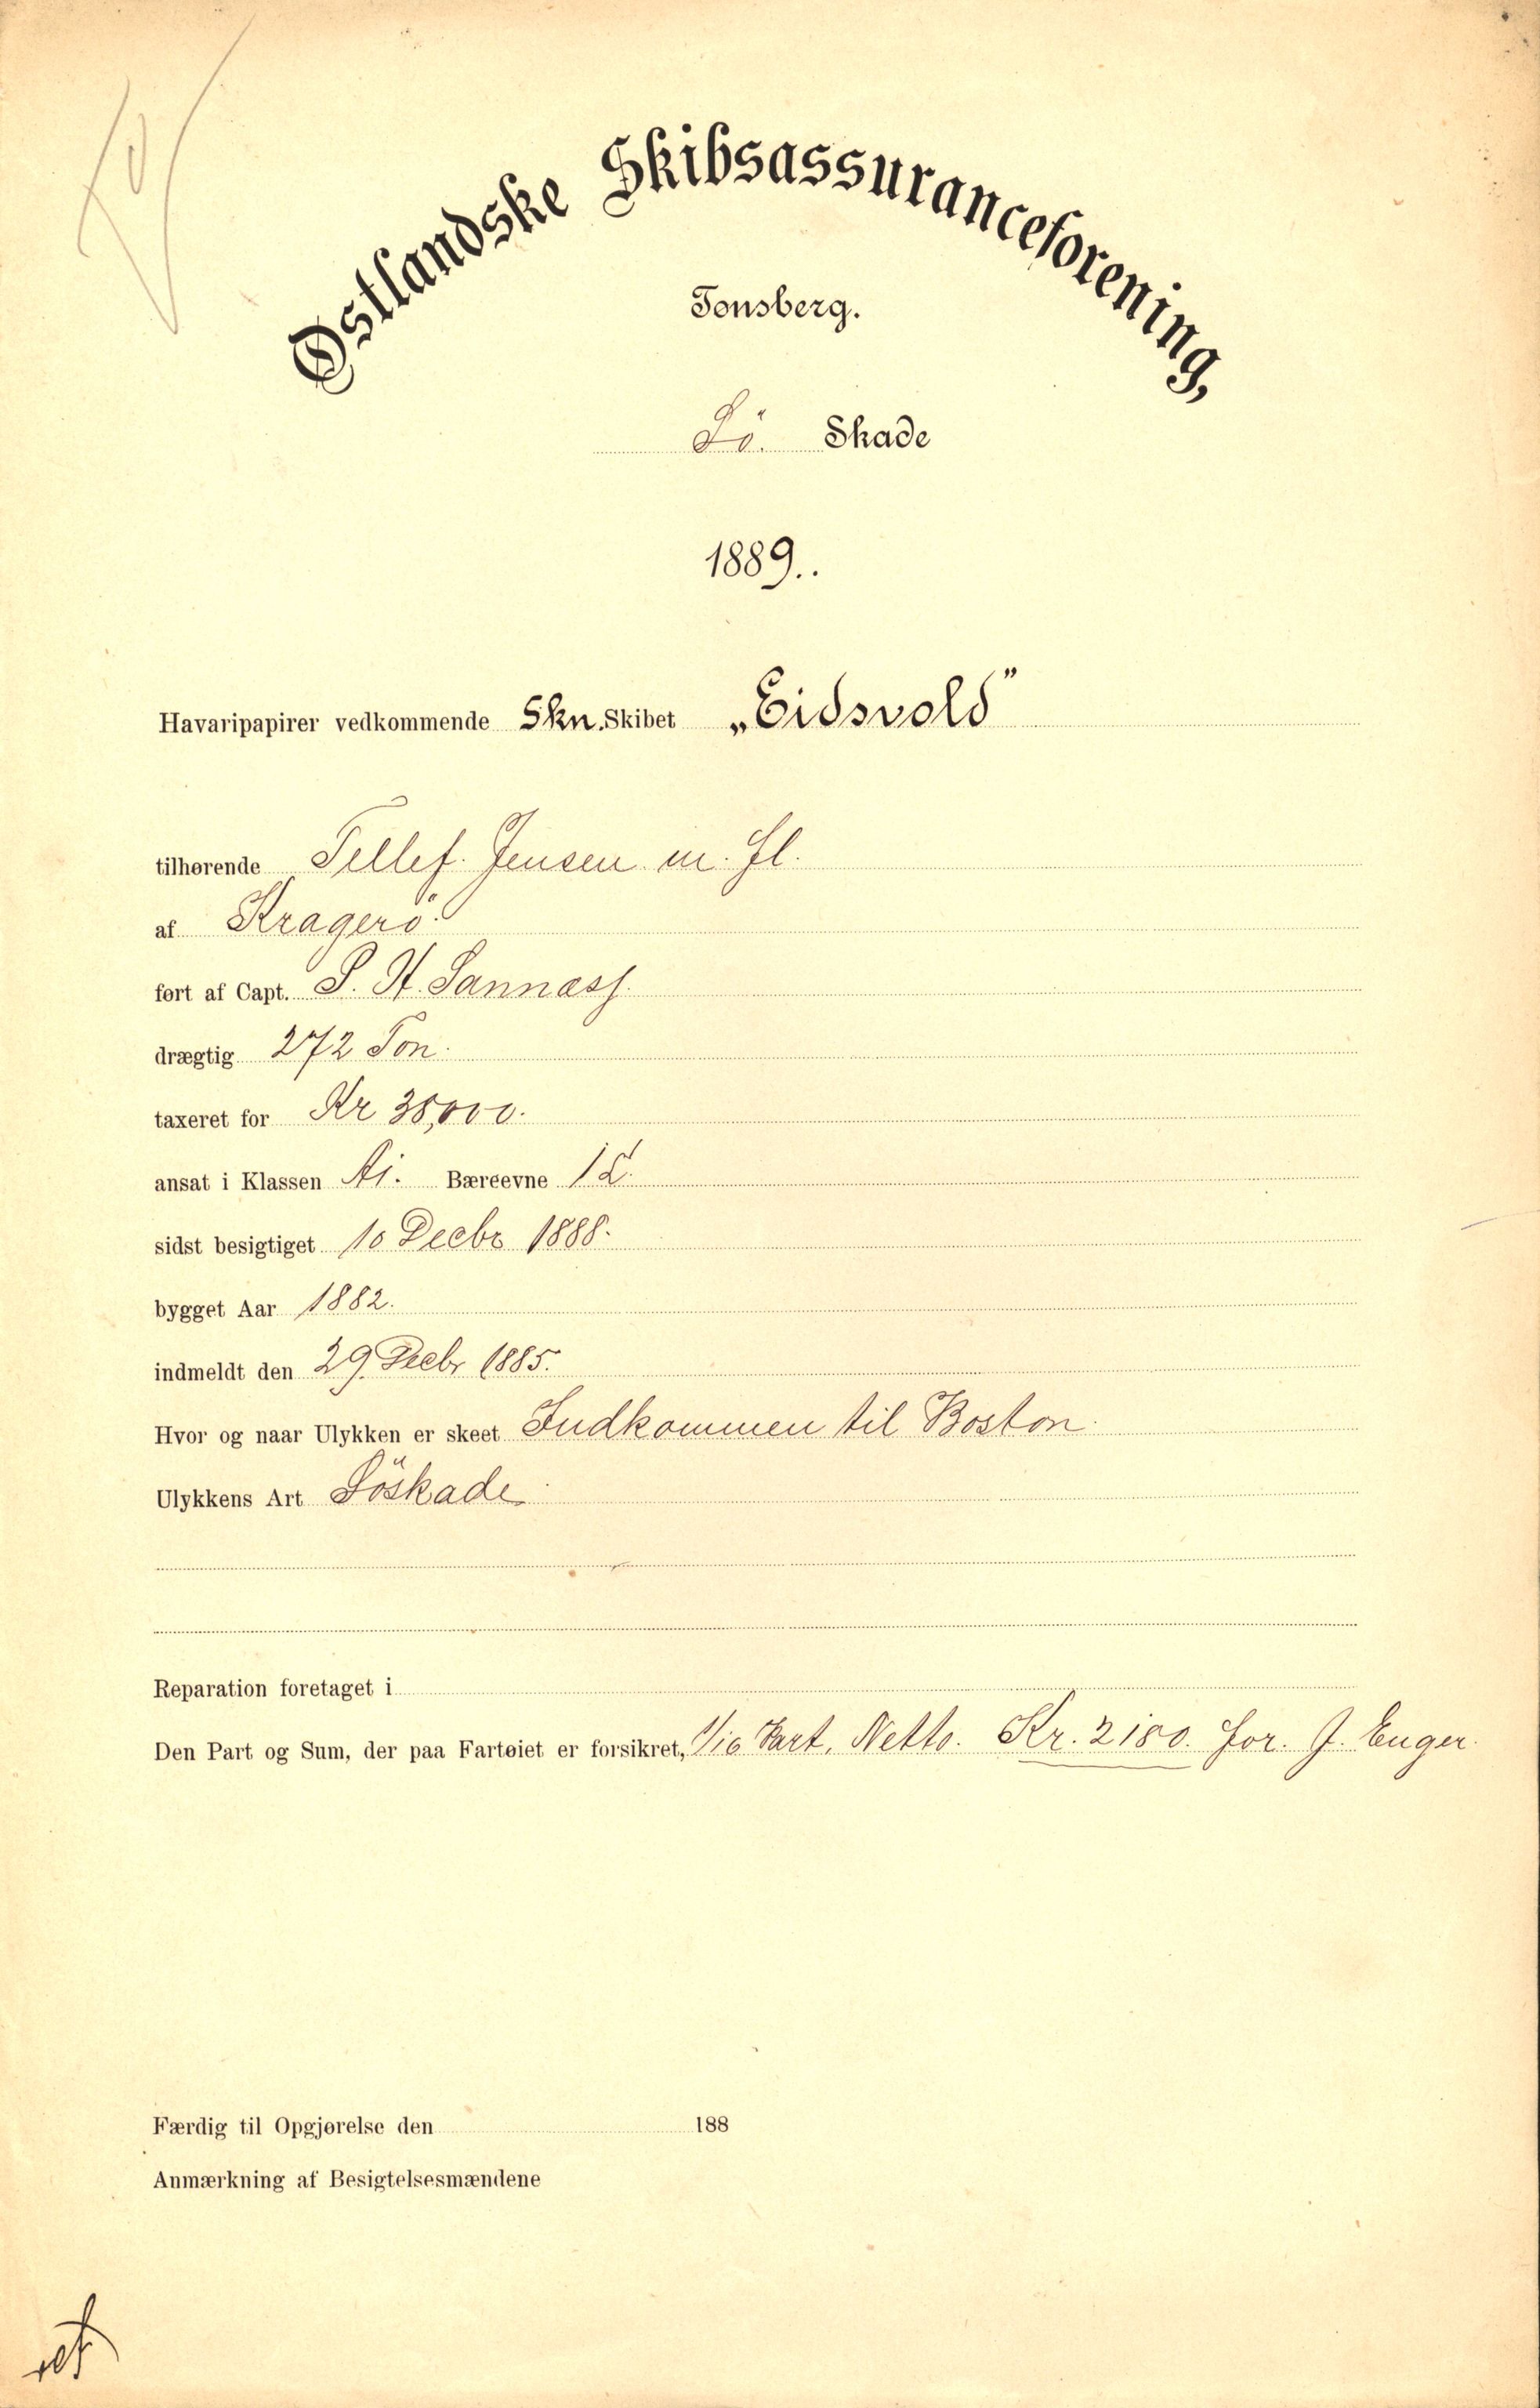 Østlandske Skibsassuranceforening,
Tønsberg.
Sö. Skade
1889..
Havaripapirer vedkommende Skn. Skibet „Eidsvold"
tilhørende Tellef. Jensen m. fl.
af Kragerö.
ført af Capt. S. H. Sannæss
drægtig 272 Ton.
taxeret for Kr 38,000.
ansat i Klassen A1. Bæreevne
sidst besigtiget 10 Decbr 1888.
bygget Aar 1882.
indmeldt den 29. Decbr 1885.
Hvor og naar Ulykken er skeet Indkommen til Boston.
Ulykkens Art Söskade
Reparation foretaget i
Den Part og Sum, der paa Fartøiet er forsikret, 1/16 Part. Netto. Kr. 2180. for. J. Enger.
Færdig til Opgjørelse den 188
Anmærkning af Besigtelsesmændene